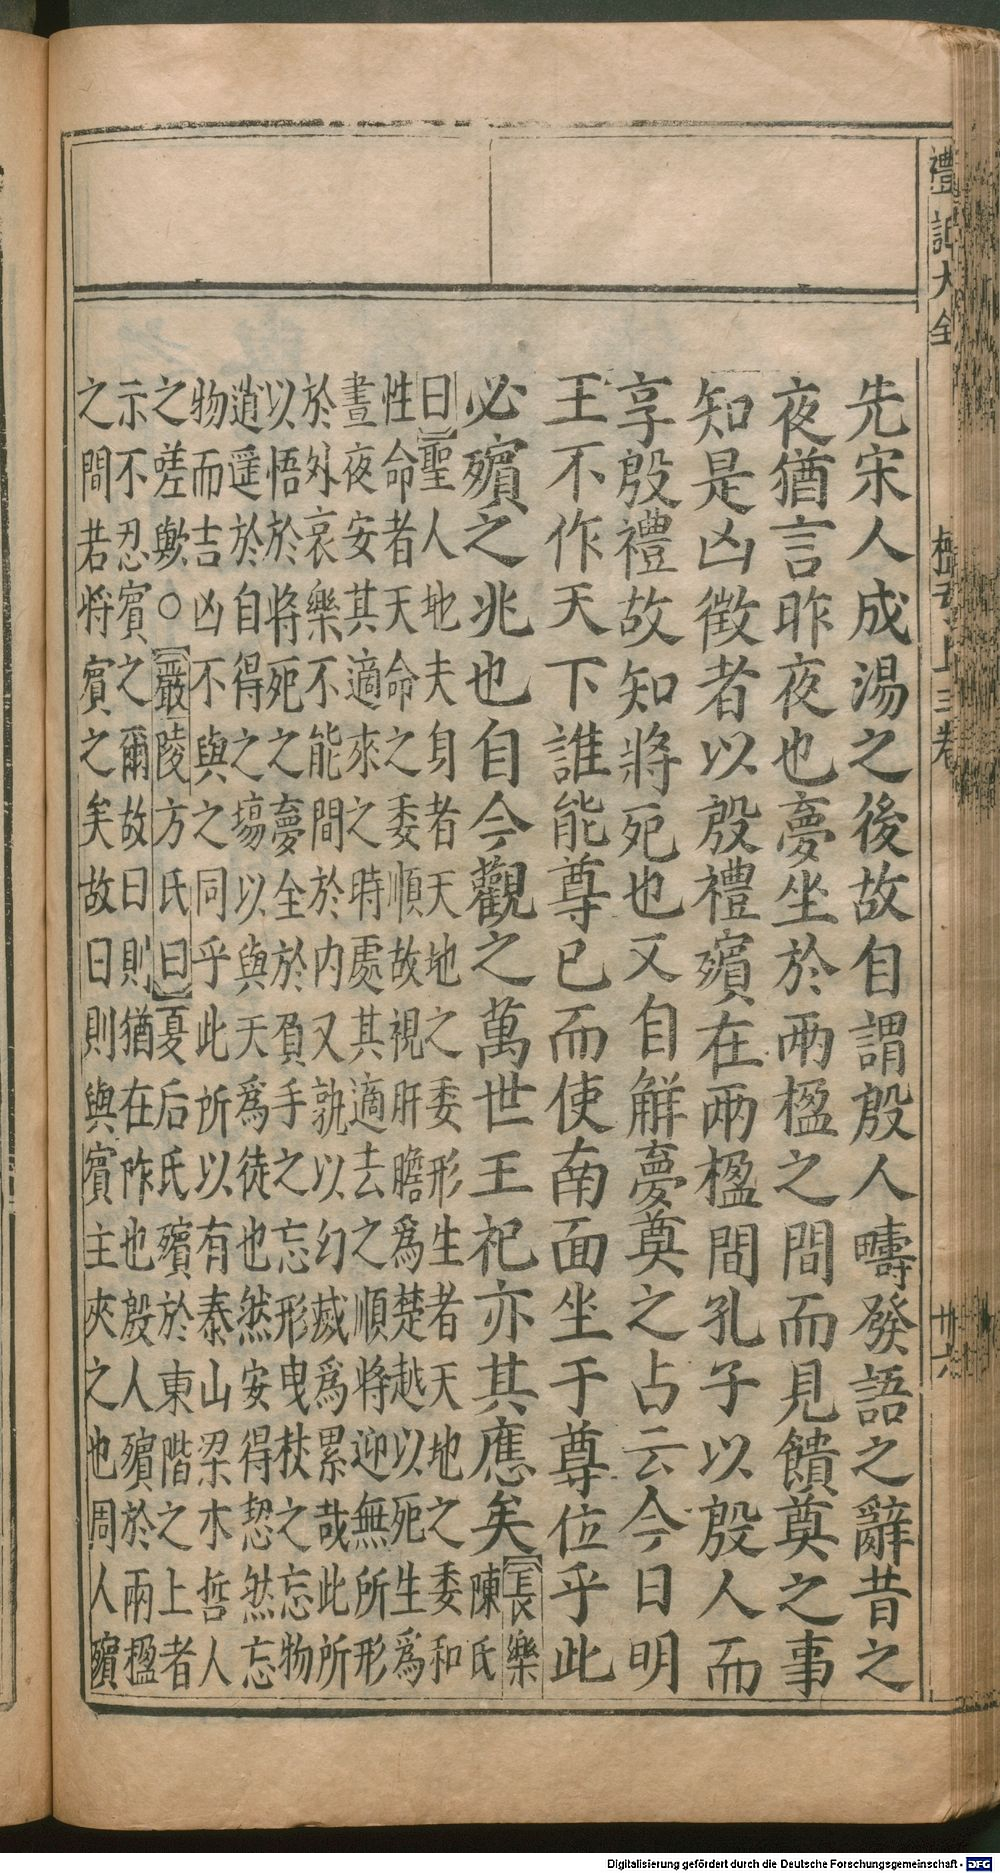 禮記大全
檀弓上三卷
廿六
先宋人成湯之後故自謂殷人疇發語之辭昔之
夜猶言昨夜也夢坐於兩楹之間而見饋奠之事
知是凶徵者以殷禮殯在兩楹間孔子以殷人而
享殷禮故知將死也又自解夢奠之占云今日明
王不作天下誰能尊已而使南面坐于尊位乎此
必殯之兆也自今觀之萬世王祀亦其應矣【長樂
陳氏
曰】聖人地夫身者天地之委形生者天地之委和
性命者天命之委順故視肝膽為楚越以死生為
晝夜安其適來之時處其適去之順將迎無所形
於外哀樂不能間於內又孰以幻滅為累哉此所
以悟於將死之夢全於負手之忘形曳杖之忘物
逍遥於自得之塲以與天為徒也然安得恝然忘
物而吉凶不與之同乎此所以有泰山梁木哲人
之嗟歟○【嚴陵方氏曰】夏后氏殯於東階之上者
示不忍賓之爾故曰則猶在阼也殷人殯於兩楹
之間若將賓之矣故曰則與賓主夾之也周人殯
Digitalisierung gefördert durch die Deutsche Forschungsgemeinschaft - DFG